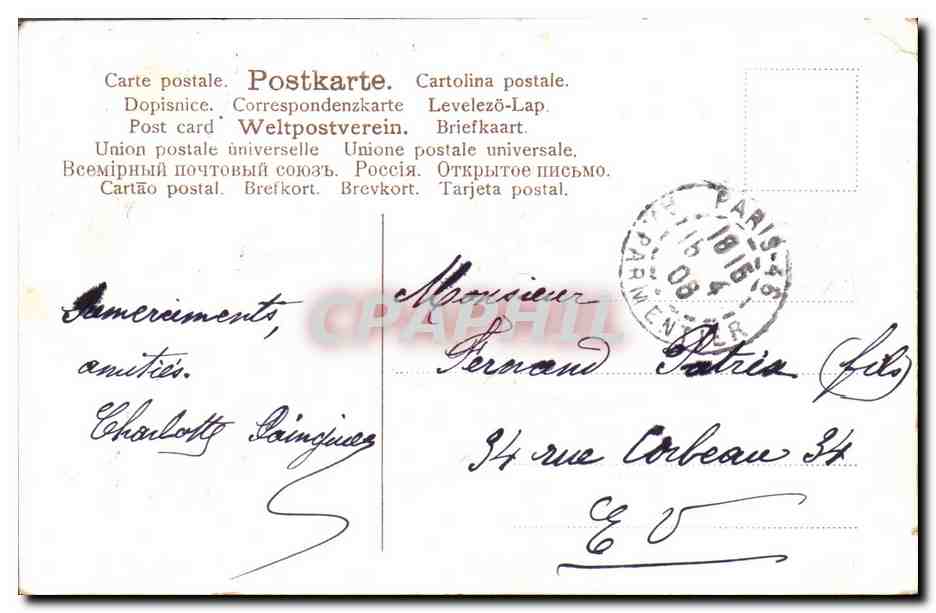 Carte postale. Postkarte. Cartolina postale.
Dopisnice. Correspondenzkarte Levelezö-Lap.
Post card Weltpostverein. Briefkaart.
Union postale universelle Unione postale universale.
Всемірный почтовый союзъ. Россія. Открытое письмо.
Cartão postal. Brefkort. Brevkort. Tarjeta postal.
PARIS-46
R. PARMENTIER
18 15
15 4
08
CPAPHIL
Monsieur
Fernand (fils)
34 rue Corbeau 34
E V
amitiés.
Charlotte